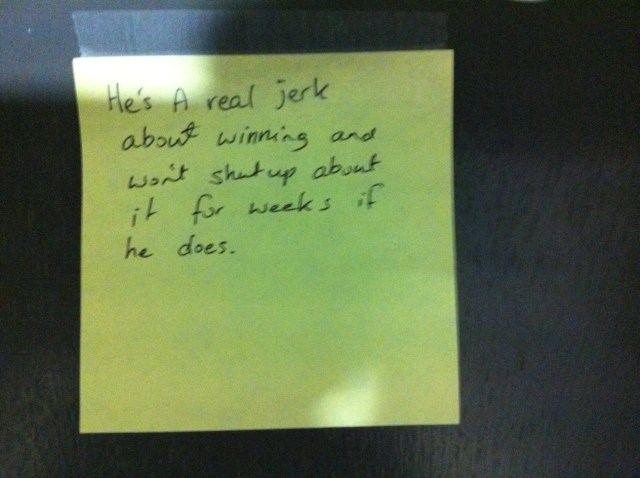 He's A real jerk
about winning and
won't shut up about
it for weeks if
he does.